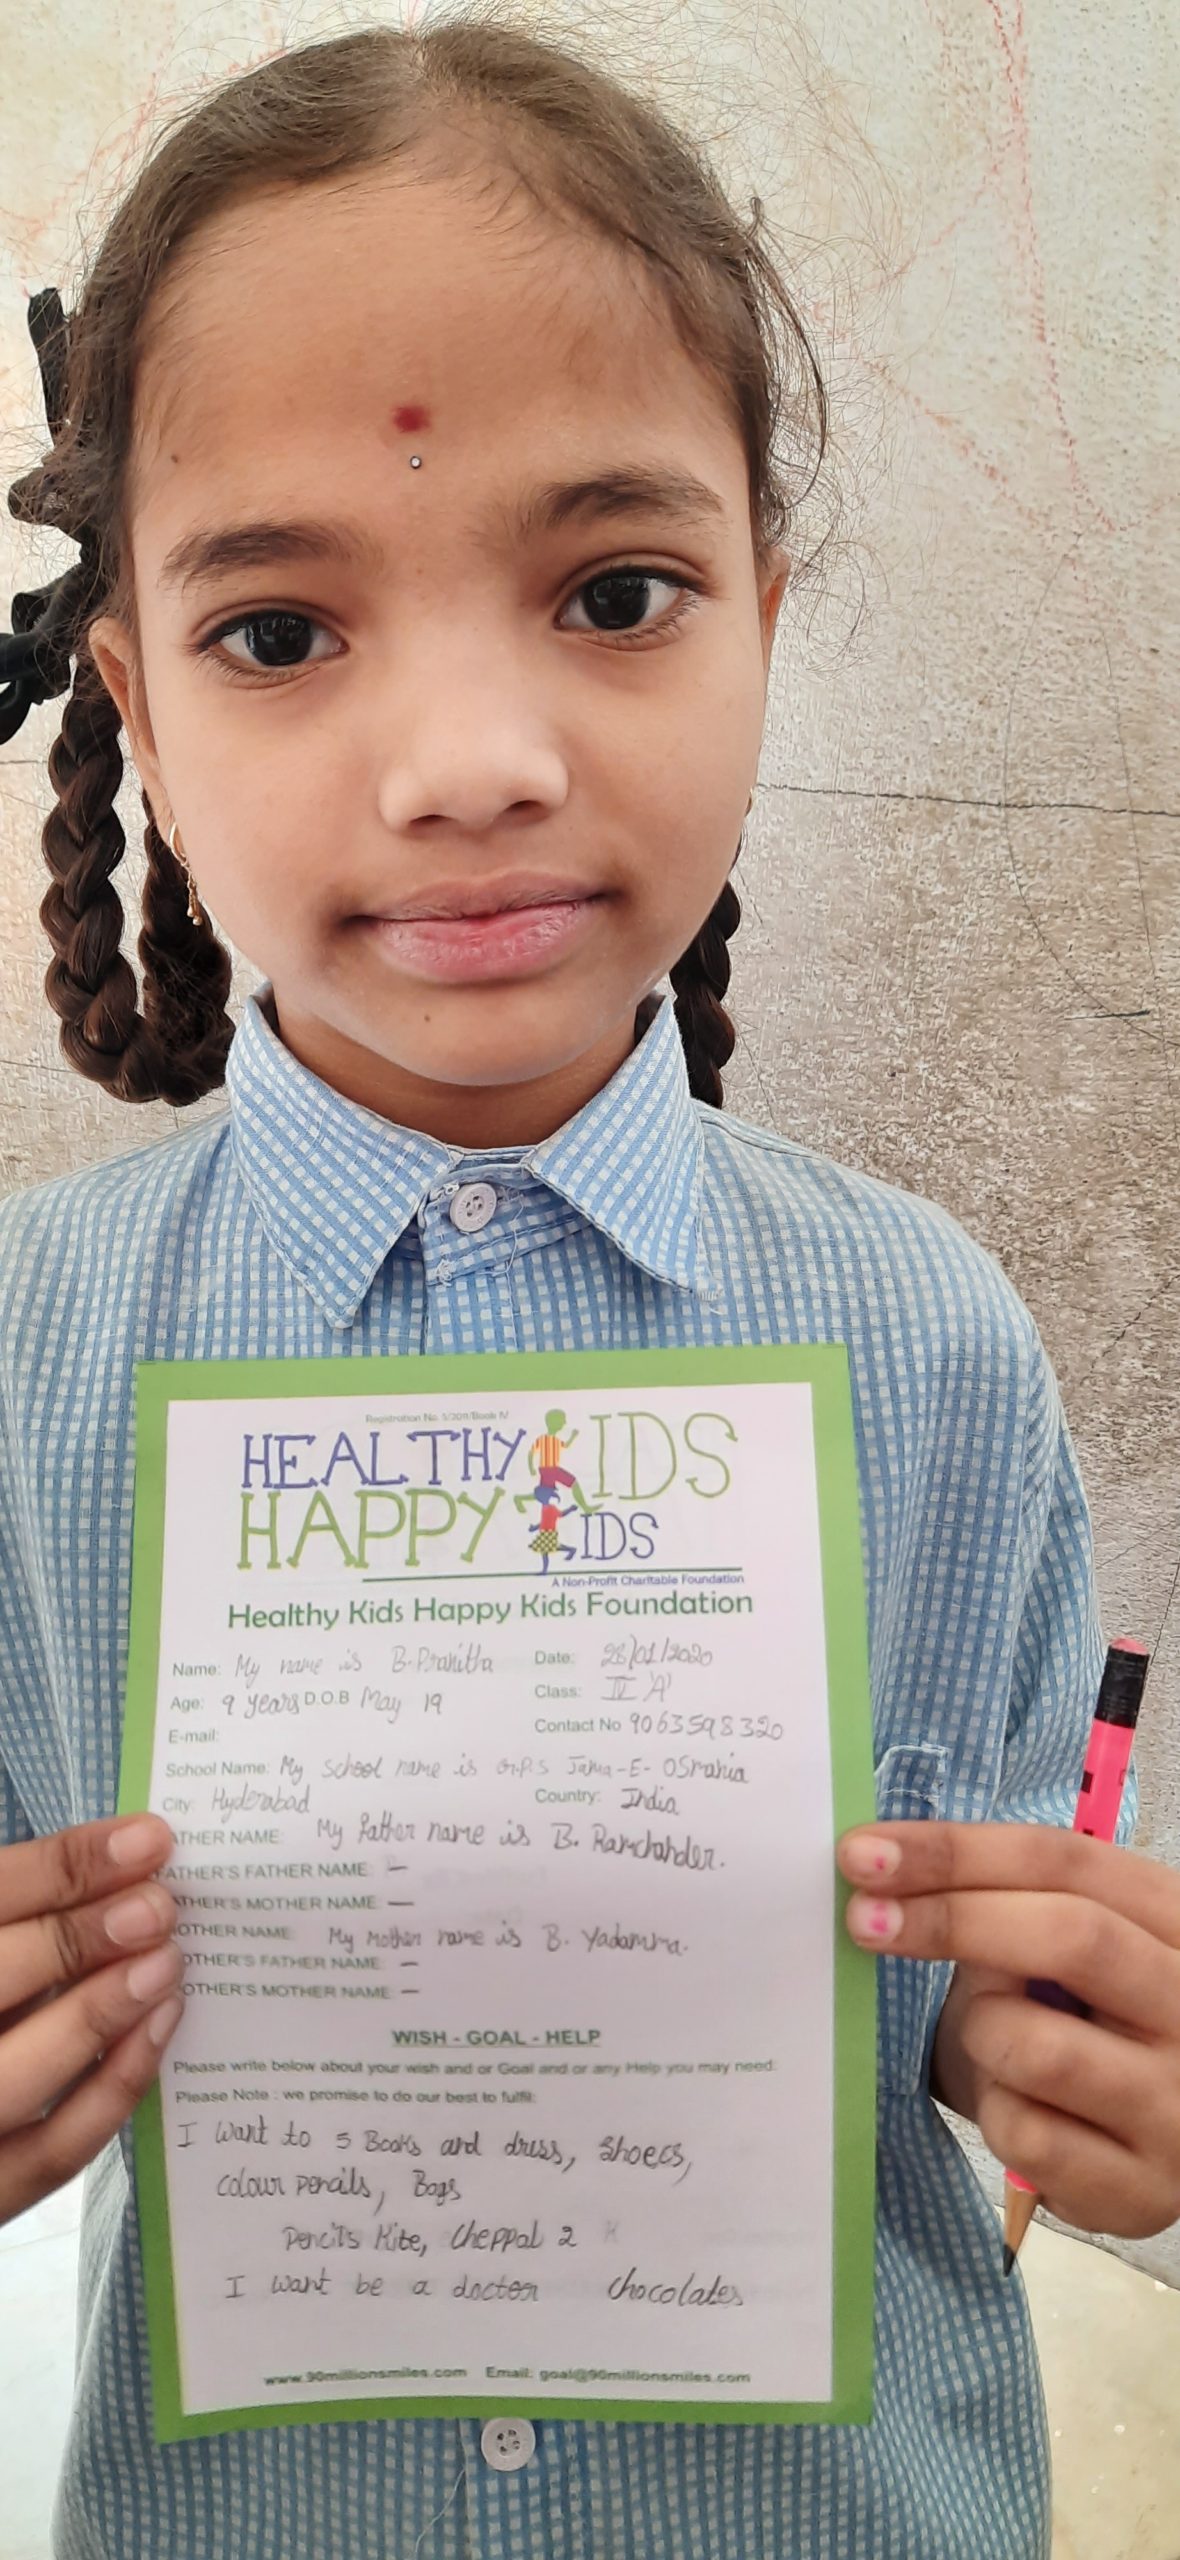 Registration No. 5/2011/Book IV
HEALTHY KIDS
HAPPY KIDS
A Non-Profit Charitable Foundation
Healthy Kids Happy Kids Foundation
Name: My name is B. Pranitha Date: 28/01/2020
Age: 9 years D.O.B May 19 Class: IV 'A'
E-mail: Contact No 9063598320
School Name: My school name is G.P.S Jama-E-OSmania
City: Hyderabad Country: India
ATHER NAME: My father name is B. Ramchander.
FATHER'S FATHER NAME: —
ATHER'S MOTHER NAME: —
OTHER NAME: My Mother name is B. Yadamma.
OTHER'S FATHER NAME: —
OTHER'S MOTHER NAME: —
WISH - GOAL - HELP
Please write below about your wish and or Goal and or any Help you may need.
Please Note : we promise to do our best to fulfil:
I want to 5 Books and dress, Shoees,
colour pencils, Bags
Pencils Kite, Cheppal 2
I want be a doctor chocolates
www.90millionsmiles.com Email: goal@90millionsmiles.com